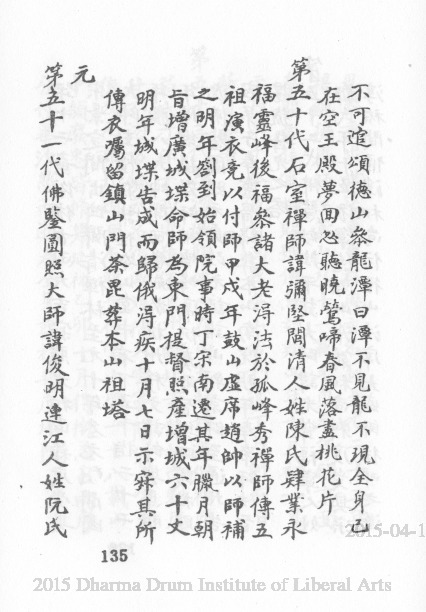 不可追頌德山參龍潭曰潭不見龍不現全身已
在空王殿夢回忽聽曉鶯啼春風落盡桃花片
第五十代石室禪師諱彌堅閩清人姓陳氏肄業永
福靈峰後福參諸大老淂法於孤峰秀禪師傳五
祖演衣竟以付師甲戌年鼓山虛席趙帥以師補
之明年劄到始領院事時丁宋南遷其年臘月朝
旨增廣城堞命師為東門提督照產增城六十丈
明年城堞告成而歸俄淂疾十月七日示寂其所
傳衣囑留鎮山門荼毘葬本山祖塔
元
第五十一代佛鑒圓照大師諱俊明連江人姓阮氏
135
2015-04-1
2015 Dharma Drum Institute of Liberal Arts